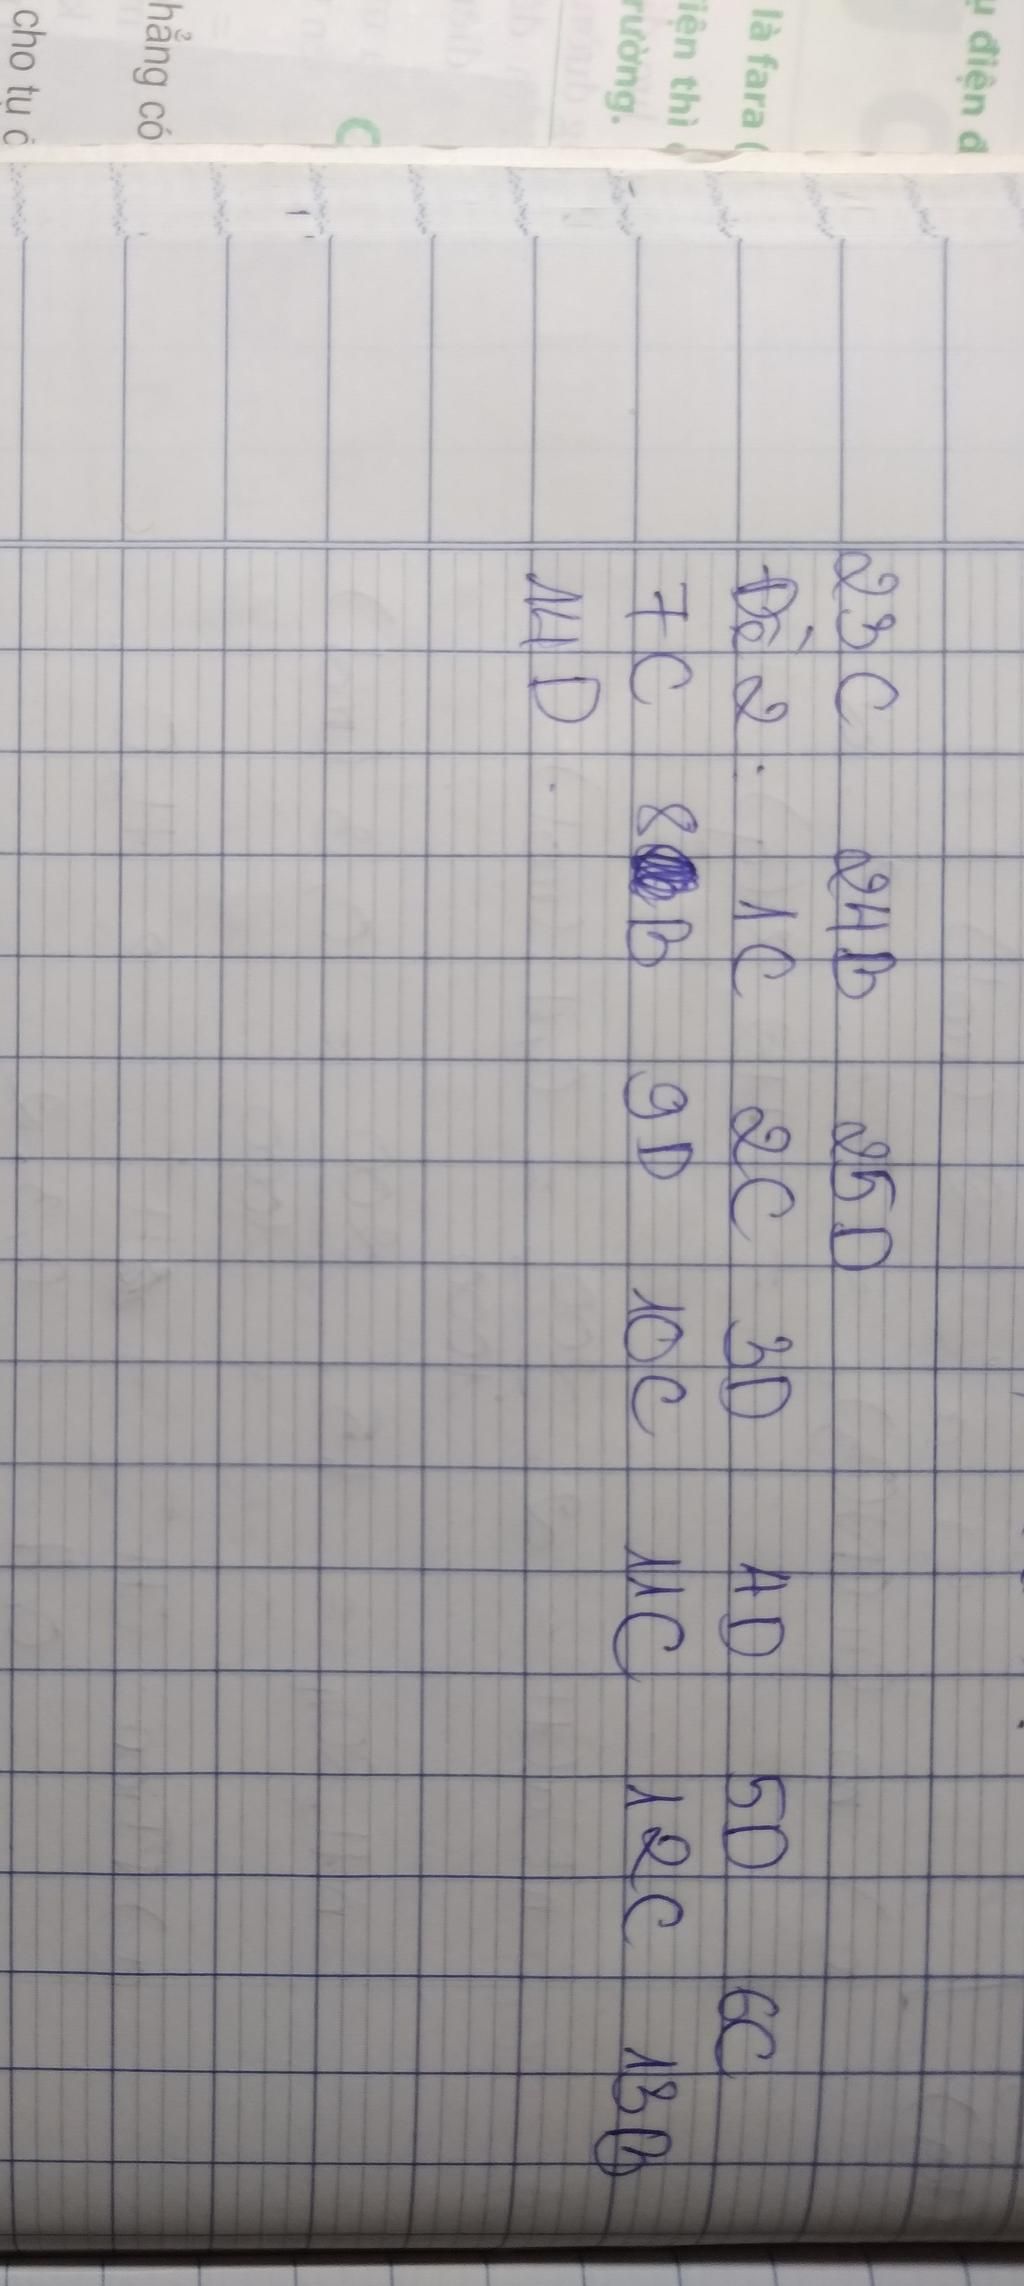 ụ điện đ
là fara (
iện thì
rường.
C
hẳng có
cho tụ
23C 24B 25D
Đề 2: 1C 2C 3D 4D 5D 6C
7C 8 B 9D 10C 11C 12C 13B
14D.